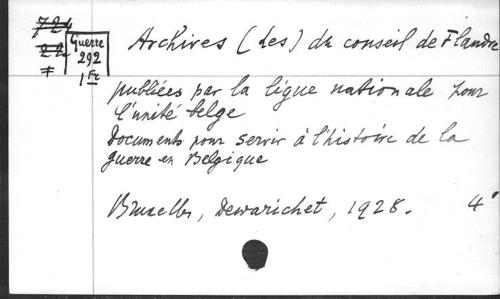 724
22
#
Guerre
292
1 Fr
Archives (Les) du conseil de Flandre
publiées par la ligue nationale pour
l'unité belge
Documents pour servir à l'histoire de la
guerre en Belgique
Bruxelles, Dewarichet, 1928. 4°